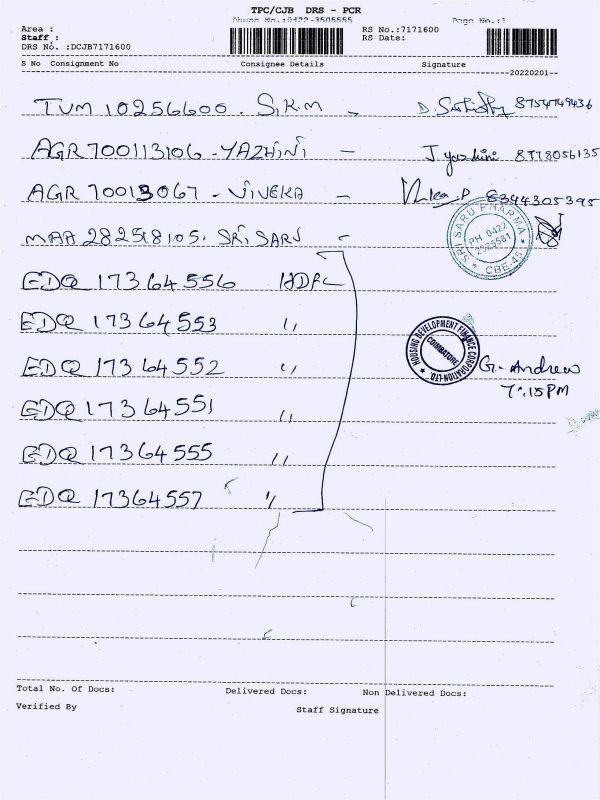 TPC/CJB DRS - PCR
Phone No.:0422-3505555 Page No.:1
Area :
Staff : RS No.:7171600
DRS No. :DCJB7171600 RS Date:
S No Consignment No Consignee Details Signature
20220201
TVM 10256600. S.K.M - 8754749436
AGR 700113106 - YAZHINI - J. yazhini 8778056135
AGR 70013067 - VIVEKA - 6344305395
MAA 282518105. SRI SARU -
SRI SARU PHARMA
PH 0422
2525581
CBE-45
EDQ 17364556 HDFC
EDQ 17364553 "
HOUSING DEVELOPMENT FINANCE CORPORATION LTD.
COIMBATORE
EDQ 17364552 " G. Andrew
7:15PM
EDQ 17364551 "
EDQ 17364555 "
EDQ 17364557 "
Total No. Of Docs: Delivered Docs: Non Delivered Docs:
Verified By Staff Signature